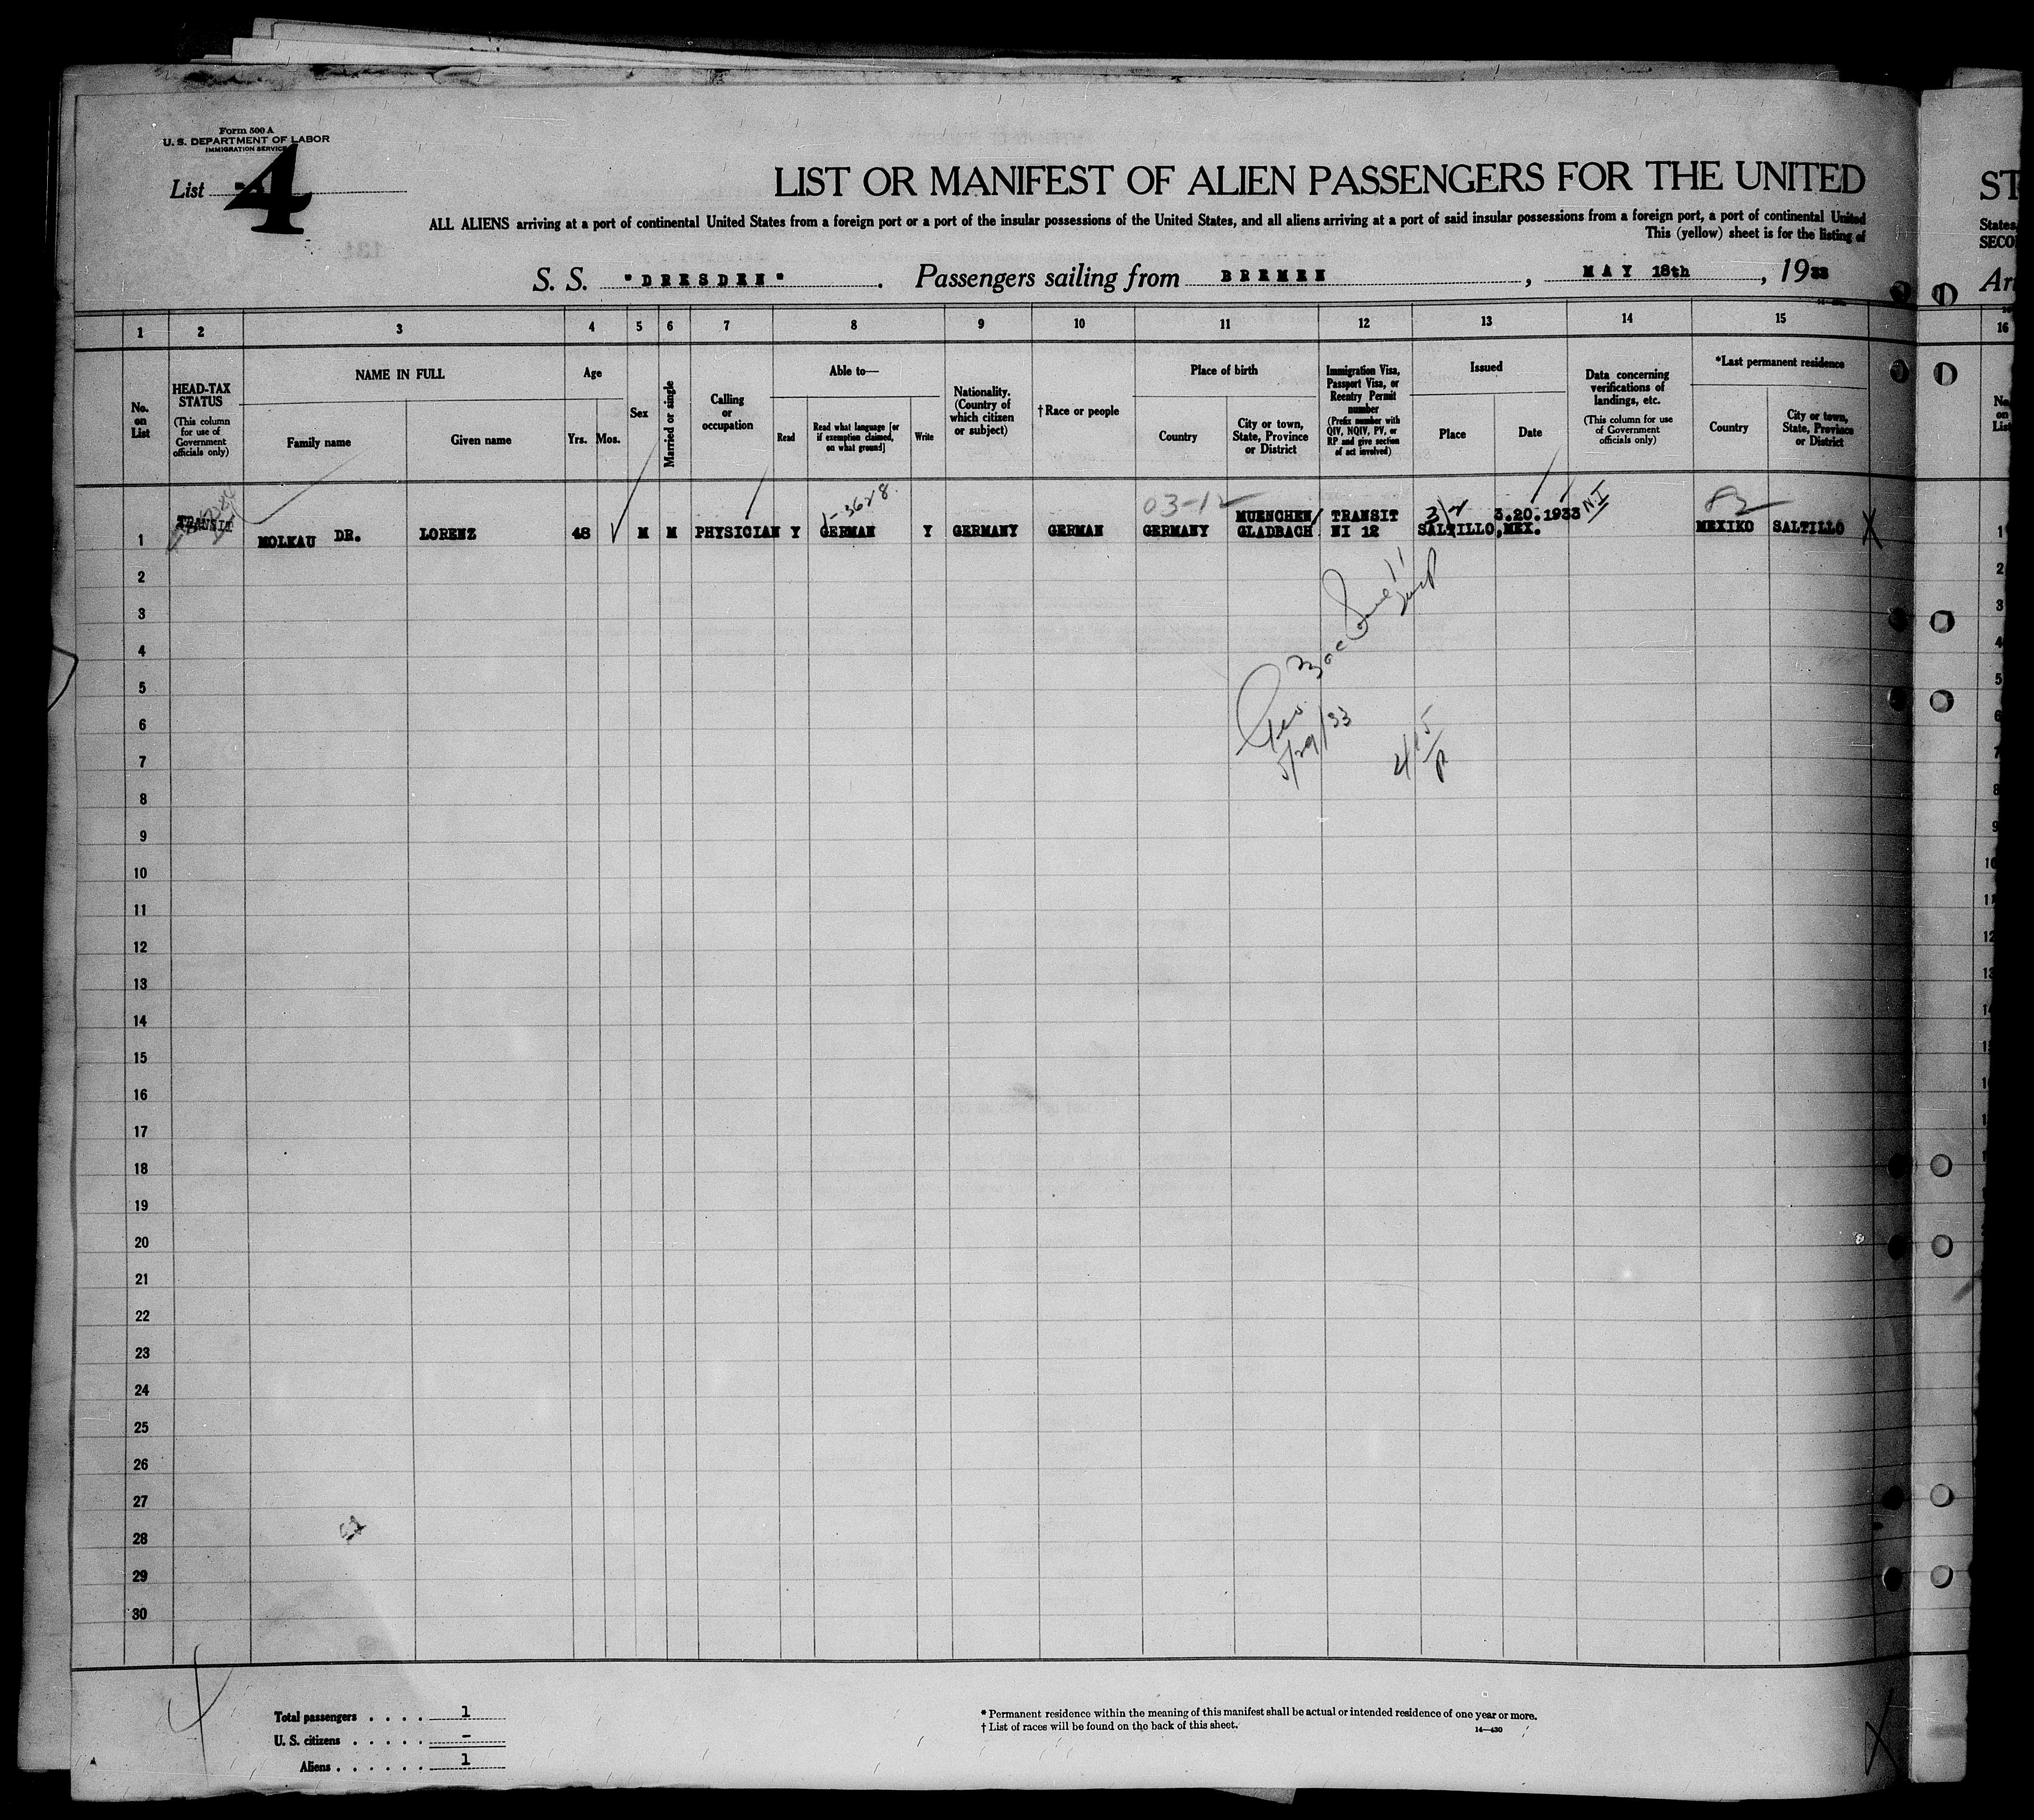 Form 500 A
U. S. DEPARTMENT OF LABOR
IMMIGRATION SERVICE
List 4
LIST OR MANIFEST OF ALIEN PASSENGERS FOR THE UNITED
ST
ALL ALIENS arriving at a port of continental United States from a foreign port or a port of the insular possessions of the United States, and all aliens arriving at a port of said insular possessions from a foreign port, a port of continental United
States
This (yellow) sheet is for the listing of
SECO
S. S. "DRESDEN". Passengers sailing from BREMEN, MAY 18th, 1933
Arr
1 2 3 4 5 6 7 8 9 10 11 12 13 14 15
16
No. on List
HEAD-TAX STATUS
(This column for use of Government officials only)
NAME IN FULL
Family name
Given name
Age
Yrs. Mos.
Sex
Married or single
Calling or occupation
Able to—
Read
Read what language [or if exemption claimed, on what ground]
Write
Nationality. (Country of which citizen or subject)
†Race or people
Place of birth
Country
City or town, State, Province or District
Immigration Visa, Passport Visa, or Reentry Permit number
(Prefix number with QIV, NQIV, PV, or RP and give section of act involved)
Issued
Place
Date
Data concerning verifications of landings, etc.
(This column for use of Government officials only)
*Last permanent residence
Country
City or town, State, Province or District
No. on List
1-3628 03-12 82
TRANSIT MUENCHEN/ TRANSIT 3/4 3.20.1933 N.I
1 MOLKAU DR. LORENZ 48 M M PHYSICIAN Y GERMAN Y GERMANY GERMAN GERMANY GLADBACH NI 12 SALTILLO,MEX. MEXIKO SALTILLO X
1
2
3
4
5
6
7
8
9
10
11
12
13
14
15
16
17
18
19
20
21
22
23
24
25
26
27
28
29
30
5/29/33
415
Total passengers . . . . 1
U. S. citizens . . . . . –
Aliens . . . . . . 1
* Permanent residence within the meaning of this manifest shall be actual or intended residence of one year or more.
† List of races will be found on the back of this sheet.
14—430